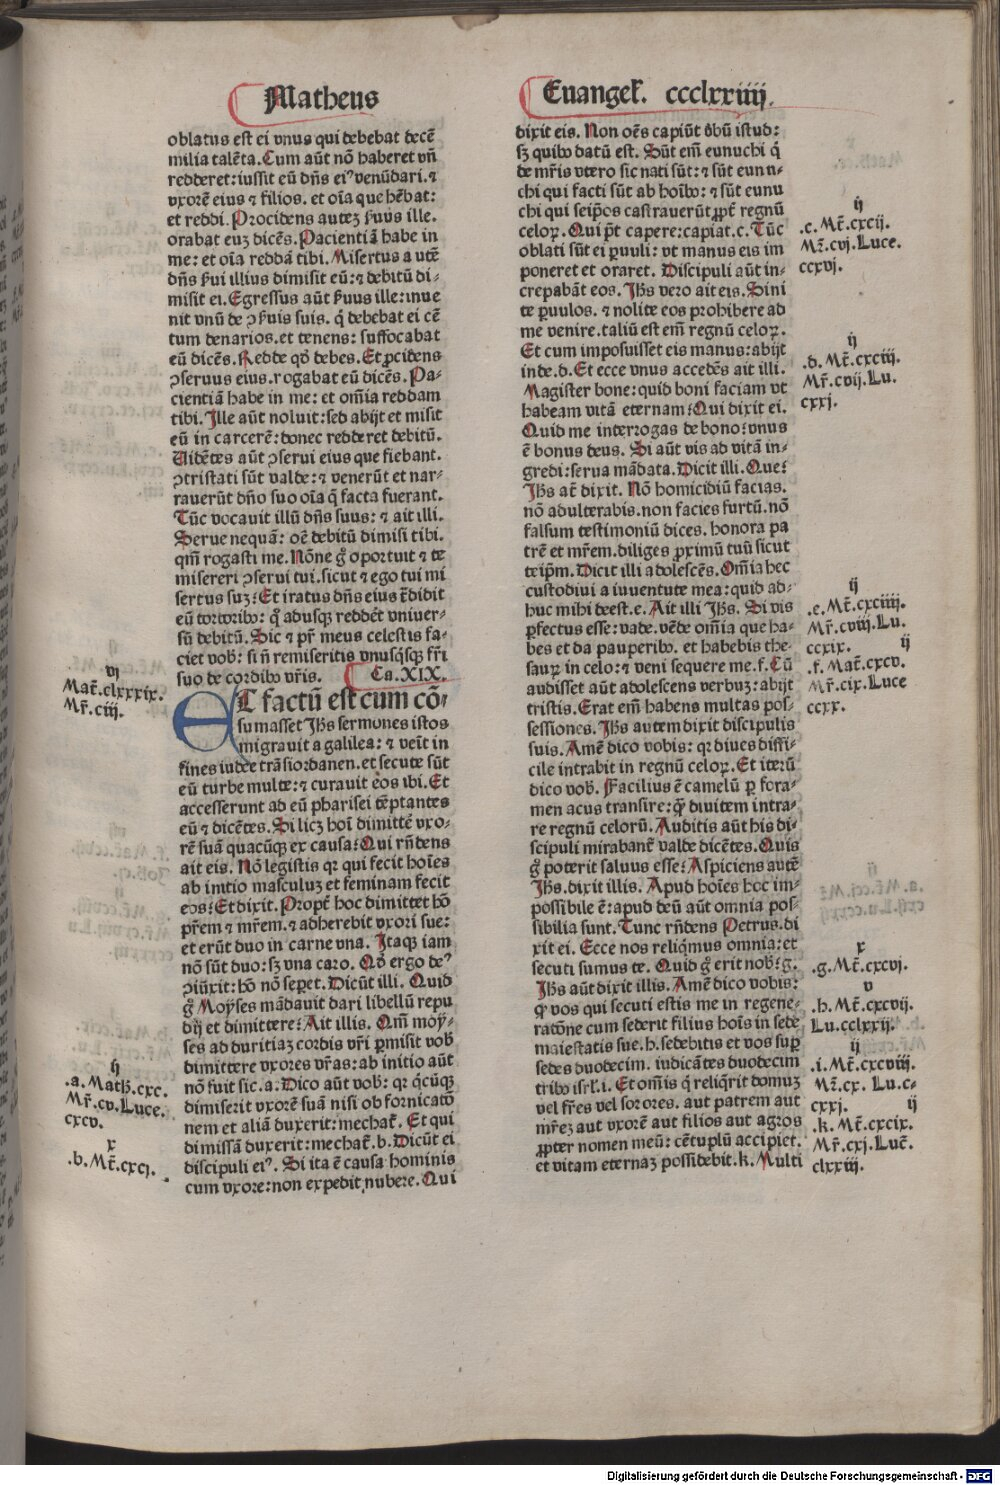 Matheus
oblatus est ei vnus qui debebat decē
milia talēta. Cum aūt nō haberet vn̄
redderet: iussit eū dn̄s eiꝰ venūdari. ⁊
vxorē eius ⁊ filios. et oīa que hēbat:
et reddi. Procidens auteꝫ ẜuus ille.
orabat euꝫ dicēs. Pacientiā habe in
me: et oīa reddā tibi. Misertus a utē
dn̄s ẜui illius dimisit eū: ⁊ debitū di⸗
misit ei. Egressus aūt ẜuus ille: inue
nit vnū de ↄẜuis suis. q̄ debebat ei cē
tum denarios. et tenens: suffocabat
eū dicēs. Redde qd̄ debes. Et ꝓcidens
ↄseruus eius. rogabat eū dicēs. Pa⸗
cientiā habe in me: et om̄ia reddam
tibi. Ille aūt noluit: sed abijt et misit
eū in carcerē: donec redderet debitū.
Uidētes aūt ↄserui eius que fiebant.
ↄtristati sūt valde: ⁊ venerūt et nar⸗
rauerūt dn̄o suo oīa q̄ facta fuerant.
Tūc vocauit illū dn̄s suus: ⁊ ait illi.
Serue nequā: oē debitū dimisi tibi.
qm̄ rogasti me. Nōne gͦ oportuit ⁊ te
misereri ↄserui tui. sicut ⁊ ego tui mi
sertus suꝫ? Et iratus dn̄s eius t̄didit
eū tortoribꝰ: qͦ adusqꝫ reddēt vniuer⸗
sū debitū. Sic ⁊ pr̄ meus celestis fa⸗
ciet vob̄: si n̄ remiseritis vnusqͥsqꝫ fr̄i
suo de cordibꝰ vr̄is. Ca. XIX.
vj
Mat̄. clxxxix.
Mr̄. ciij.
Et factū est cum cō⸗
sumasset Jh̄s sermones istos
migrauit a galilea: ⁊ venīt in
fines iudee trāsiordanen. et secute sūt
eū turbe multe: ⁊ curauit eos ibi. Et
accesserunt ad eū pharisei tēptantes
eū ⁊ dicētes. Si licꝫ hoī dimittē vxo⸗
rē suā quacūqꝫ ex causa? Qui rn̄dens
ait eis. Nō legistis qꝛ qui fecit hoīes
ab initio masculuꝫ et feminam fecit
eos? Et dixit. Propt̄ hoc dimittet hō
pr̄em ⁊ mr̄em. ⁊ adherebit vxori sue:
et erūt duo in carne vna. Itaqꝫ iam
nō sūt duo: sꝫ vna caro. Qd̄ ergo deꝰ
ↄiūxit: hō nō seꝑet. Dicūt illi. Quid
gͦ Moÿses mādauit dari libellū repu
dij et dimittere? Ait illis. Qm̄ moÿ⸗
ses ad duritiaꝫ cordis vr̄i ꝑmisit vob̄
dimittere vxores vr̄as: ab initio aūt
nō fuit sic. a. Dico aūt vob̄: qꝛ qͥcūqꝫ
dimiserit vxorē suā nisi ob fornicatō
nem et aliā duxerit: mechat̄. Et qui
dimissā duxerit: mechat̄. b. Dicūt ei
discipuli eiꝰ. Si ita ē causa hominis
cum vxore: non expedit nubere. Qui
ij
.a. Math̄. cxc.
Mr̄. cv. Luce.
cxcv.
x
.b. Mt̄. cxcj.
Euangel̄. ccclxxiiij.
dixit eis. Non oēs capiūt v̄bū istud:
sꝫ quibꝰ datū est. Sūt em̄ eunuchi q̄
de mr̄is vtero sic nati sūt: ⁊ sūt eunu⸗
chi qui facti sūt ab hoībꝰ: ⁊ sūt eunu
chi qui seip̄os castrauerūt ꝓpt̄ regnū
celoꝝ. Qui p̄t capere: capiat. c. Tūc
oblati sūt ei paruuli: vt manus eis im
poneret et oraret. Discipuli aūt in⸗
crepabāt eos. Jh̄s vero ait eis. Sini
te paruulos. ⁊ nolite eos prohibere ad
me venire. taliū est em̄ regnū celoꝝ.
Et cum imposuisset eis manus: abijt
inde. d. Et ecce vnus accedēs ait illi.
Magister bone: quid boni faciam vt
habeam vitā eternam? Qui dixit ei.
Quid me interrogas de bono? vnus
ē bonus deus. Si aūt vis ad vitā in⸗
gredi: serua mādata. Dicit illi. Que?
Jh̄s at̄ dixit. Nō homicidiū facias.
nō adulterabis. non facies furtū. nō
falsum testimoniū dices. honora pa
trē et mr̄em. diliges proximū tuū sicut
teip̄m. Dicit illi adolescēs. Om̄ia hec
custodiui a iuuentute mea: quid ad⸗
huc mihi deest. e. Ait illi Jh̄s. Si vis
ꝑfectus esse: vade. vēde om̄ia que ha⸗
bes et da pauperibꝰ. et habebis the⸗
sauꝝ in celo: ⁊ veni sequere me. f. Cū
audisset aūt adolescens verbuꝫ: abijt
tristis. Erat em̄ habens multas pos⸗
sessiones. Jh̄s autem dixit discipulis
suis. Amē dico vobis: qꝛ diues diffi⸗
cile intrabit in regnū celoꝝ. Et iterū
dico vob̄. Facilius ē camelū ꝑ fora⸗
men acus transire: qͣ̄ diuitem intra⸗
re regnū celorū. Auditis aūt his di⸗
scipuli mirabant̄ valde dicētes. Quis
gͦ poterit saluus esse? Aspiciens autē
Jh̄s. dixit illis. Apud hoīes hoc im⸗
possibile ē: apud deū aūt omnia pos⸗
sibilia sunt. Tunc rn̄dens Petrus. di
xit ei. Ecce nos reliqͥmus omnia: et
secuti sumus te. Quid gͦ erit nob̄? g.
Jh̄s aūt dixit illis. Amē dico vobis:
qͦ vos qui secuti estis me in regene⸗
ratōne cum sederit filius hoīs in sede
maiestatis sue. h. sedebitis et vos suꝑ
sedes duodecim. iudicātes duodecim
tribꝰ isrl̄. i. Et om̄is q̄ reliqͥrit domuꝫ
vel fr̄es vel sorores. aut patrem aut
mr̄eꝫ aut vxorē aut filios aut agros
ꝓpter nomen meū: cētuplū accipiet.
et vitam eternaꝫ possidebit. k. Multi
ij
.c. Mt̄. cxcij.
Mꝛ̄. cvj. Luce.
ccxvj.
ij
.d. Mt̄. cxciij.
Mr̄. cvij. Lu.
cxxj.
ij
.e. Mt̄. cxciiij.
Mr̄. cviij. Lu.
ccxix. ij
.f. Mat̄. cxcv.
Mr̄. cix. Luce
ccxx.
x
.g. Mt̄. cxcvj.
v
.h. Mt̄. cxcvij.
Lu. cclxxij.
ij
.i. Mt̄. cxcviij.
Mꝛ̄. cx. Lu. c⸗
cxxj. ij
.k. Mt̄. cxcix.
Mr̄. cxj. Luc̄.
clxxiij.
Digitalisierung gefördert durch die Deutsche Forschungsgemeinschaft - DFG